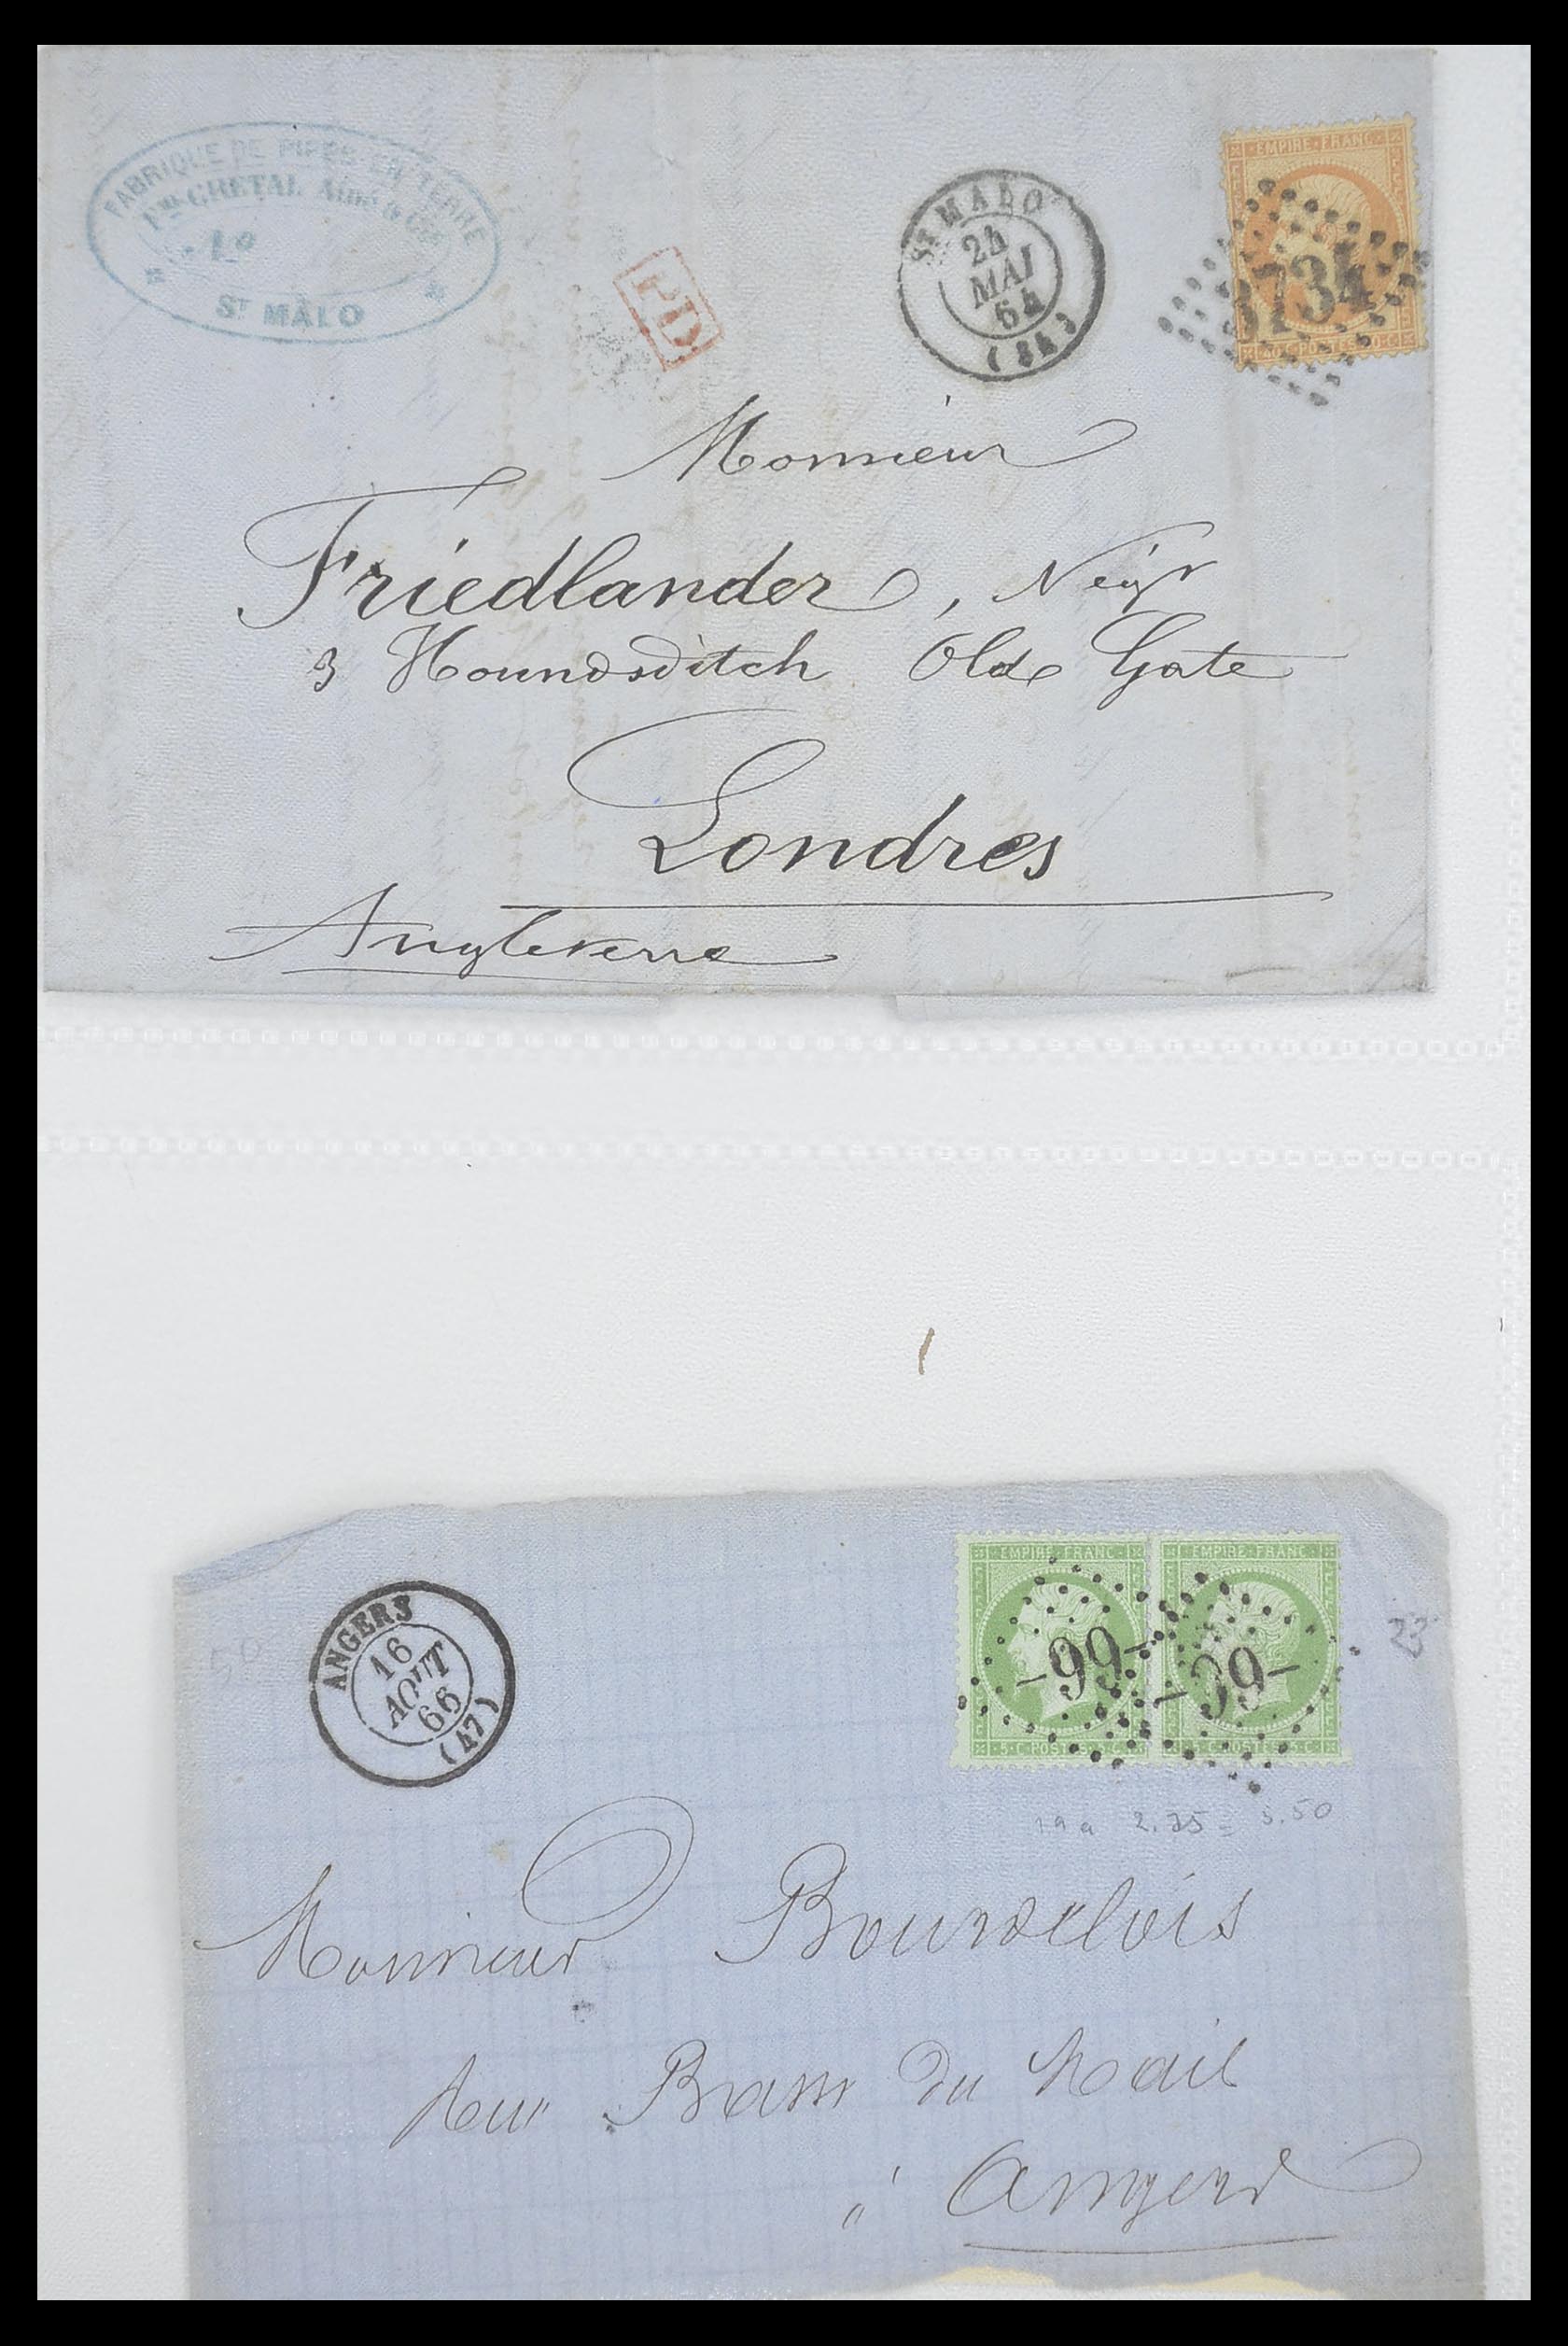 FABRIQUE DE PIPES EN TERRE
CRETAL Ainé & Cie
ST MALO
PD
ST MALO
24
MAI
64
(34)
EMPIRE · FRANC ·
3734
40 C · POSTES · 40 C
Monsieur
Friedlander, Negt
3 Houndsditch Old Gate
Londres
Angleterre
ANGERS
16
AOUT
66
(47)
50
EMPIRE · FRANC ·
99
5 · C · POSTES · 5 · C
EMPIRE · FRANC ·
99
5 · C · POSTES · 5 · C
23
19 a 2.75 = 5.50
Monsieur Bourdelois
Rue Basse du Mail
à Angers